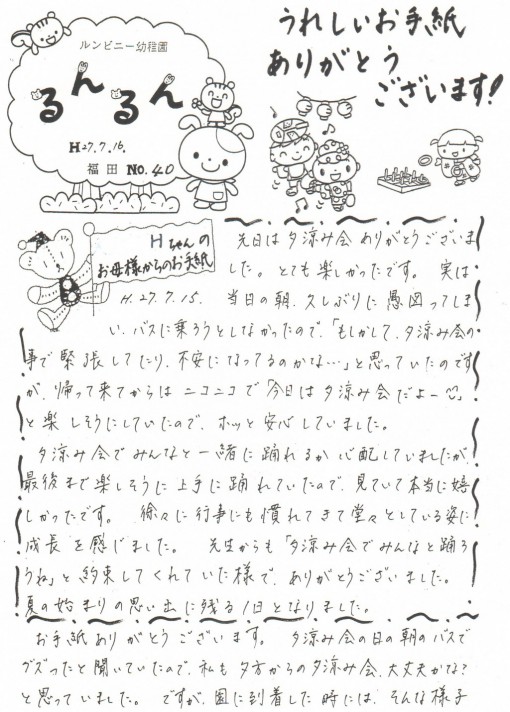 ルンビニー幼稚園
るんるん
H27.7.16.
福田 No.40
うれしいお手紙
ありがとう
ございます!
Hちゃんの
お母様からのお手紙
H.27.7.15.
先日は夕涼み会ありがとうございま
した。とても楽しかったです。 実は
当日の朝、久しぶりに愚図ってしま
い、バスに乗ろうとしなかったので、「もしかして、夕涼み会の
事で緊張してたり、不安になってるのかな…」と思っていたのです
が、帰って来てからはニコニコで「今日は夕涼み会だよー♡」
と楽しそうにしていたので、ホッと安心していました。
夕涼み会でみんなと一緒に踊れるか心配していましたが
最後まで楽しそうに上手に踊れていたので、見ていて本当に嬉
しかったです。 徐々に行事にも慣れてきて堂々としている姿に
成長を感じました。 先生からも「夕涼み会でみんなと踊ろ
うね」と約束してくれていた様で、ありがとうございました。
夏の始まりの思い出に残る1日となりました。
お手紙ありがとうございます。 夕涼み会の日の朝のバスで
グズったと聞いていたので、私も夕方からの夕涼み会、大丈夫かな?
と思っていました。 ですが、園に到着した時には、そんな様子